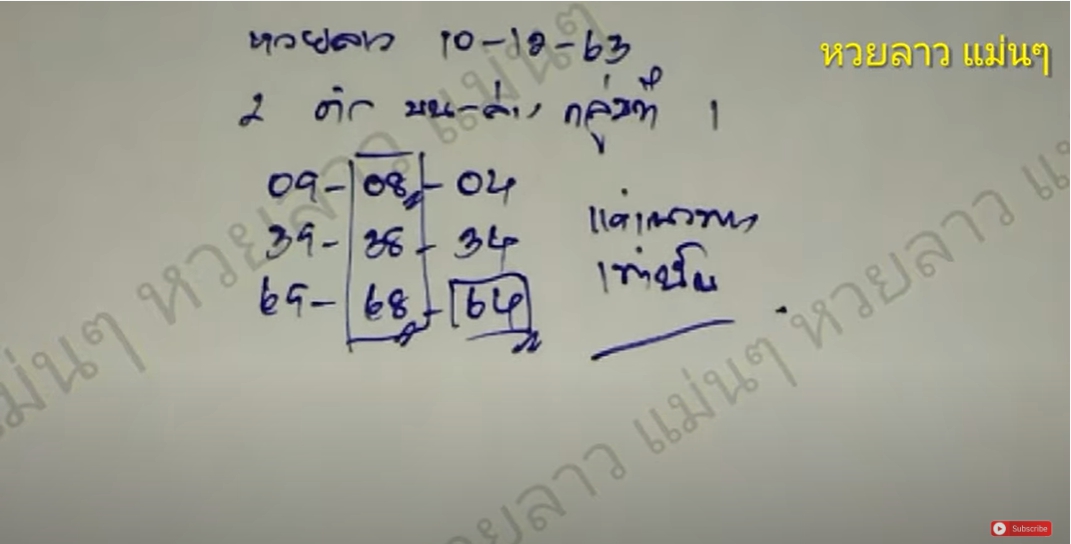 หวยลาว 10-12-63
หวยลาว แม่นๆ
2 ตัว บน-ล่าง กลุ่มที่ 1
09-08-04
39-38-34
69-68-64
แค่แนวทาง
เท่านั้น
แม่นๆ หวยลาว แม่นๆ
แม่นๆ หวยลาว แม่นๆ
หวยลาว แม่นๆ หวยลาว แม่นๆ
Subscribe